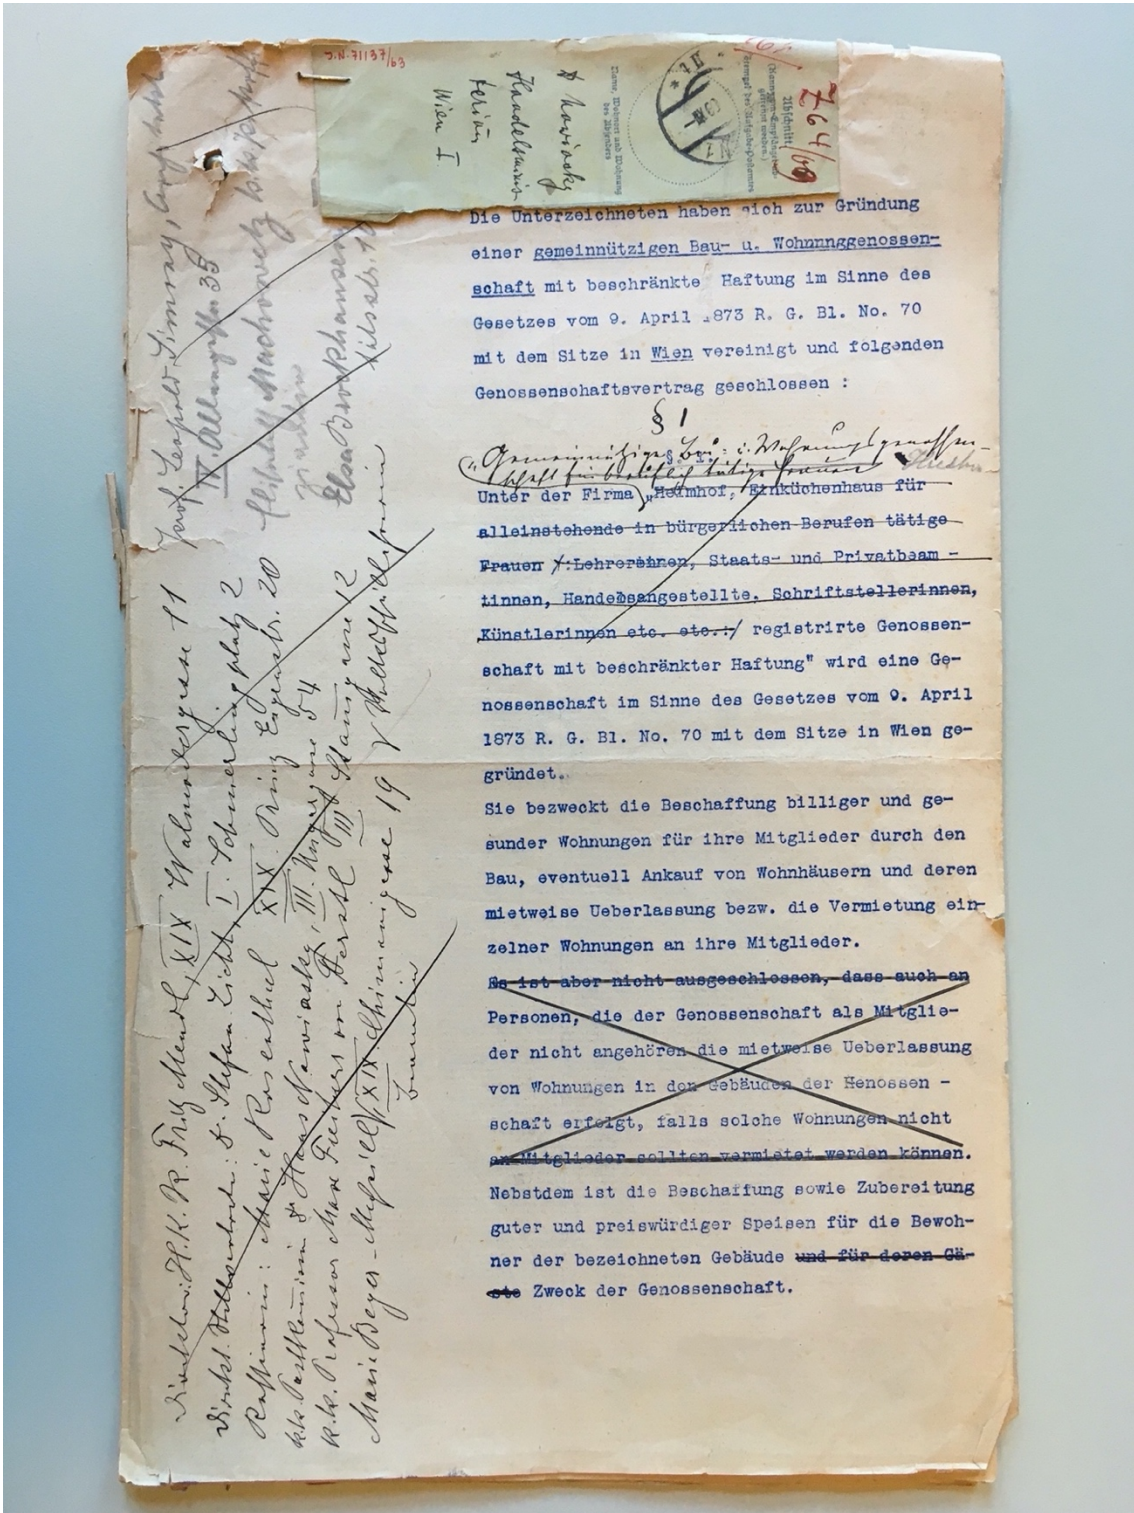 J.N. 71137/63
Z 64/69
Abschnitt
Name, Wohnort und Wohnung
des Absenders
Handelsminis-
terium
Wien I
Die Unterzeichneten haben sich zur Gründung
einer gemeinnützigen Bau- u. Wohnnnggenossen-
schaft mit beschränkte Haftung im Sinne des
Gesetzes vom 9. April 1873 R. G. Bl. No. 70
mit dem Sitze in Wien vereinigt und folgenden
Genossenschaftsvertrag geschlossen :
§ 1
„Gemeinnützige Bau- u. Wohnungsgenossen-
schaft für beruflich tätige Frauen
§ 1.
Unter der Firma „Heimhof, Einküchenhaus für
alleinstehende in bürgerlichen Berufen tätige
Frauen /:Lehrerinnen, Staats- und Privatbeam -
tinnen, Handelsangestellte, Schriftstellerinnen,
Künstlerinnen etc. etc.:/ registrirte Genossen-
schaft mit beschränkter Haftung" wird eine Ge-
nossenschaft im Sinne des Gesetzes vom 9. April
1873 R. G. Bl. No. 70 mit dem Sitze in Wien ge-
gründet.
Sie bezweckt die Beschaffung billiger und ge-
sunder Wohnungen für ihre Mitglieder durch den
Bau, eventuell Ankauf von Wohnhäusern und deren
mietweise Ueberlassung bezw. die Vermietung ein-
zelner Wohnungen an ihre Mitglieder.
Es ist aber nicht ausgeschlossen, dass auch an
Personen, die der Genossenschaft als Mitglie-
der nicht angehören die mietweise Ueberlassung
von Wohnungen in den Gebäuden der Henossen -
schaft erfolgt, falls solche Wohnungen nicht
an Mitglieder sollten vermietet werden können.
Nebstdem ist die Beschaffung sowie Zubereitung
guter und preiswürdiger Speisen für die Bewoh-
ner der bezeichneten Gebäude und für deren Gä-
ste Zweck der Genossenschaft.
Prof. Leopold Simony,
IV. Alleegasse 35
Elsa Brockhausen
Direktor: H.K.R. Fritz Mendl, XIX
11
Direkt. Stellvertreter: Dr. Stefan Licht, I. Schmerlingplatz 2
Kassierin: Marie Rosenthal XIX. Prinz Eugenstr. 20
Dr Hans Nawiasky, III. Ungargasse 54
k.k. Professor Max Freiherr von Ferstl III 12
Marie Beyer-Mussill, XIX Chimanigasse 19
Beamtin